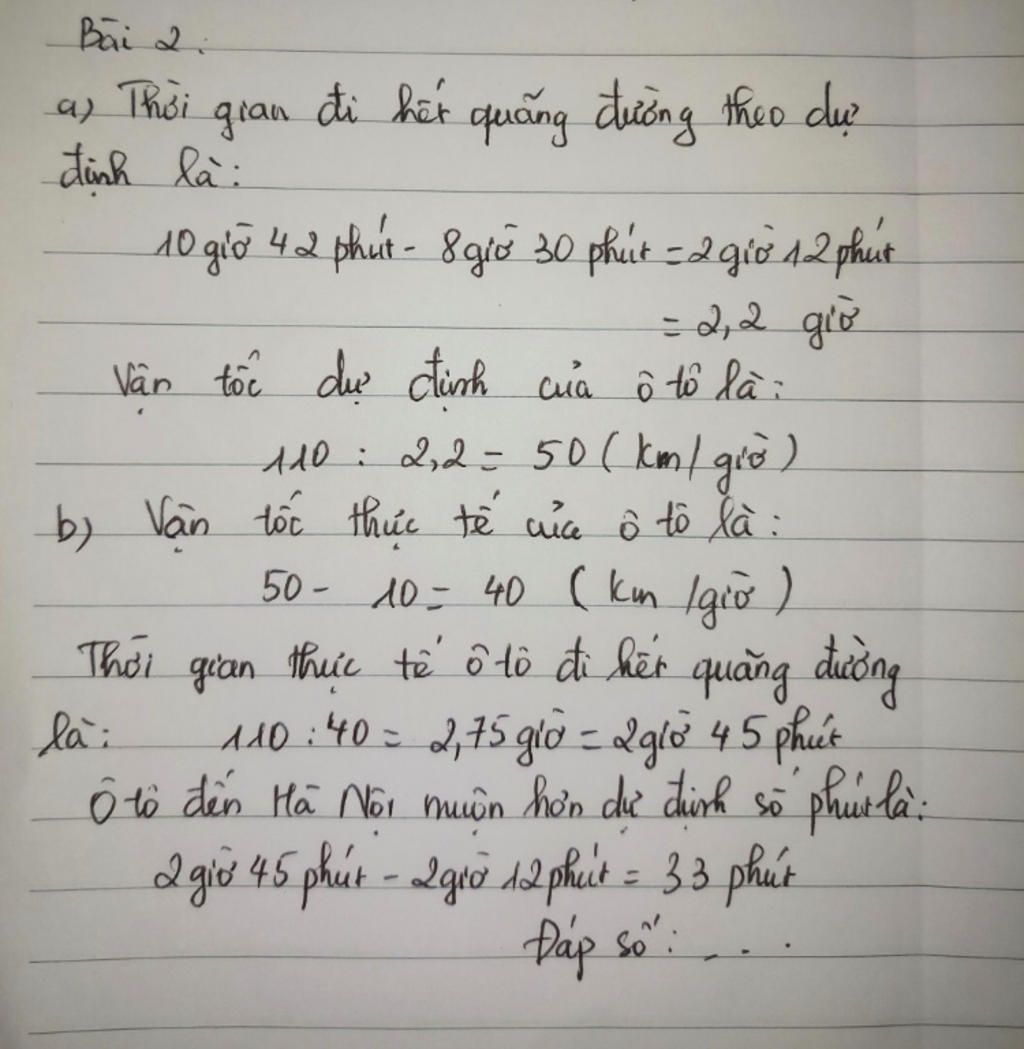 Bài 2:
a) Thời gian đi hết quãng đường theo dự
định là:
10 giờ 42 phút - 8 giờ 30 phút = 2 giờ 12 phút
= 2,2 giờ
Vận tốc dự định của ô tô là:
110 : 2,2 = 50 (km/giờ)
b) Vận tốc thực tế của ô tô là:
50 - 10 = 40 (km/giờ)
Thời gian thực tế ô tô đi hết quãng đường
là: 110 : 40 = 2,75 giờ = 2 giờ 45 phút
Ô tô đến Hà Nội muộn hơn dự định số phút là:
2 giờ 45 phút - 2 giờ 12 phút = 33 phút
Đáp số: ...